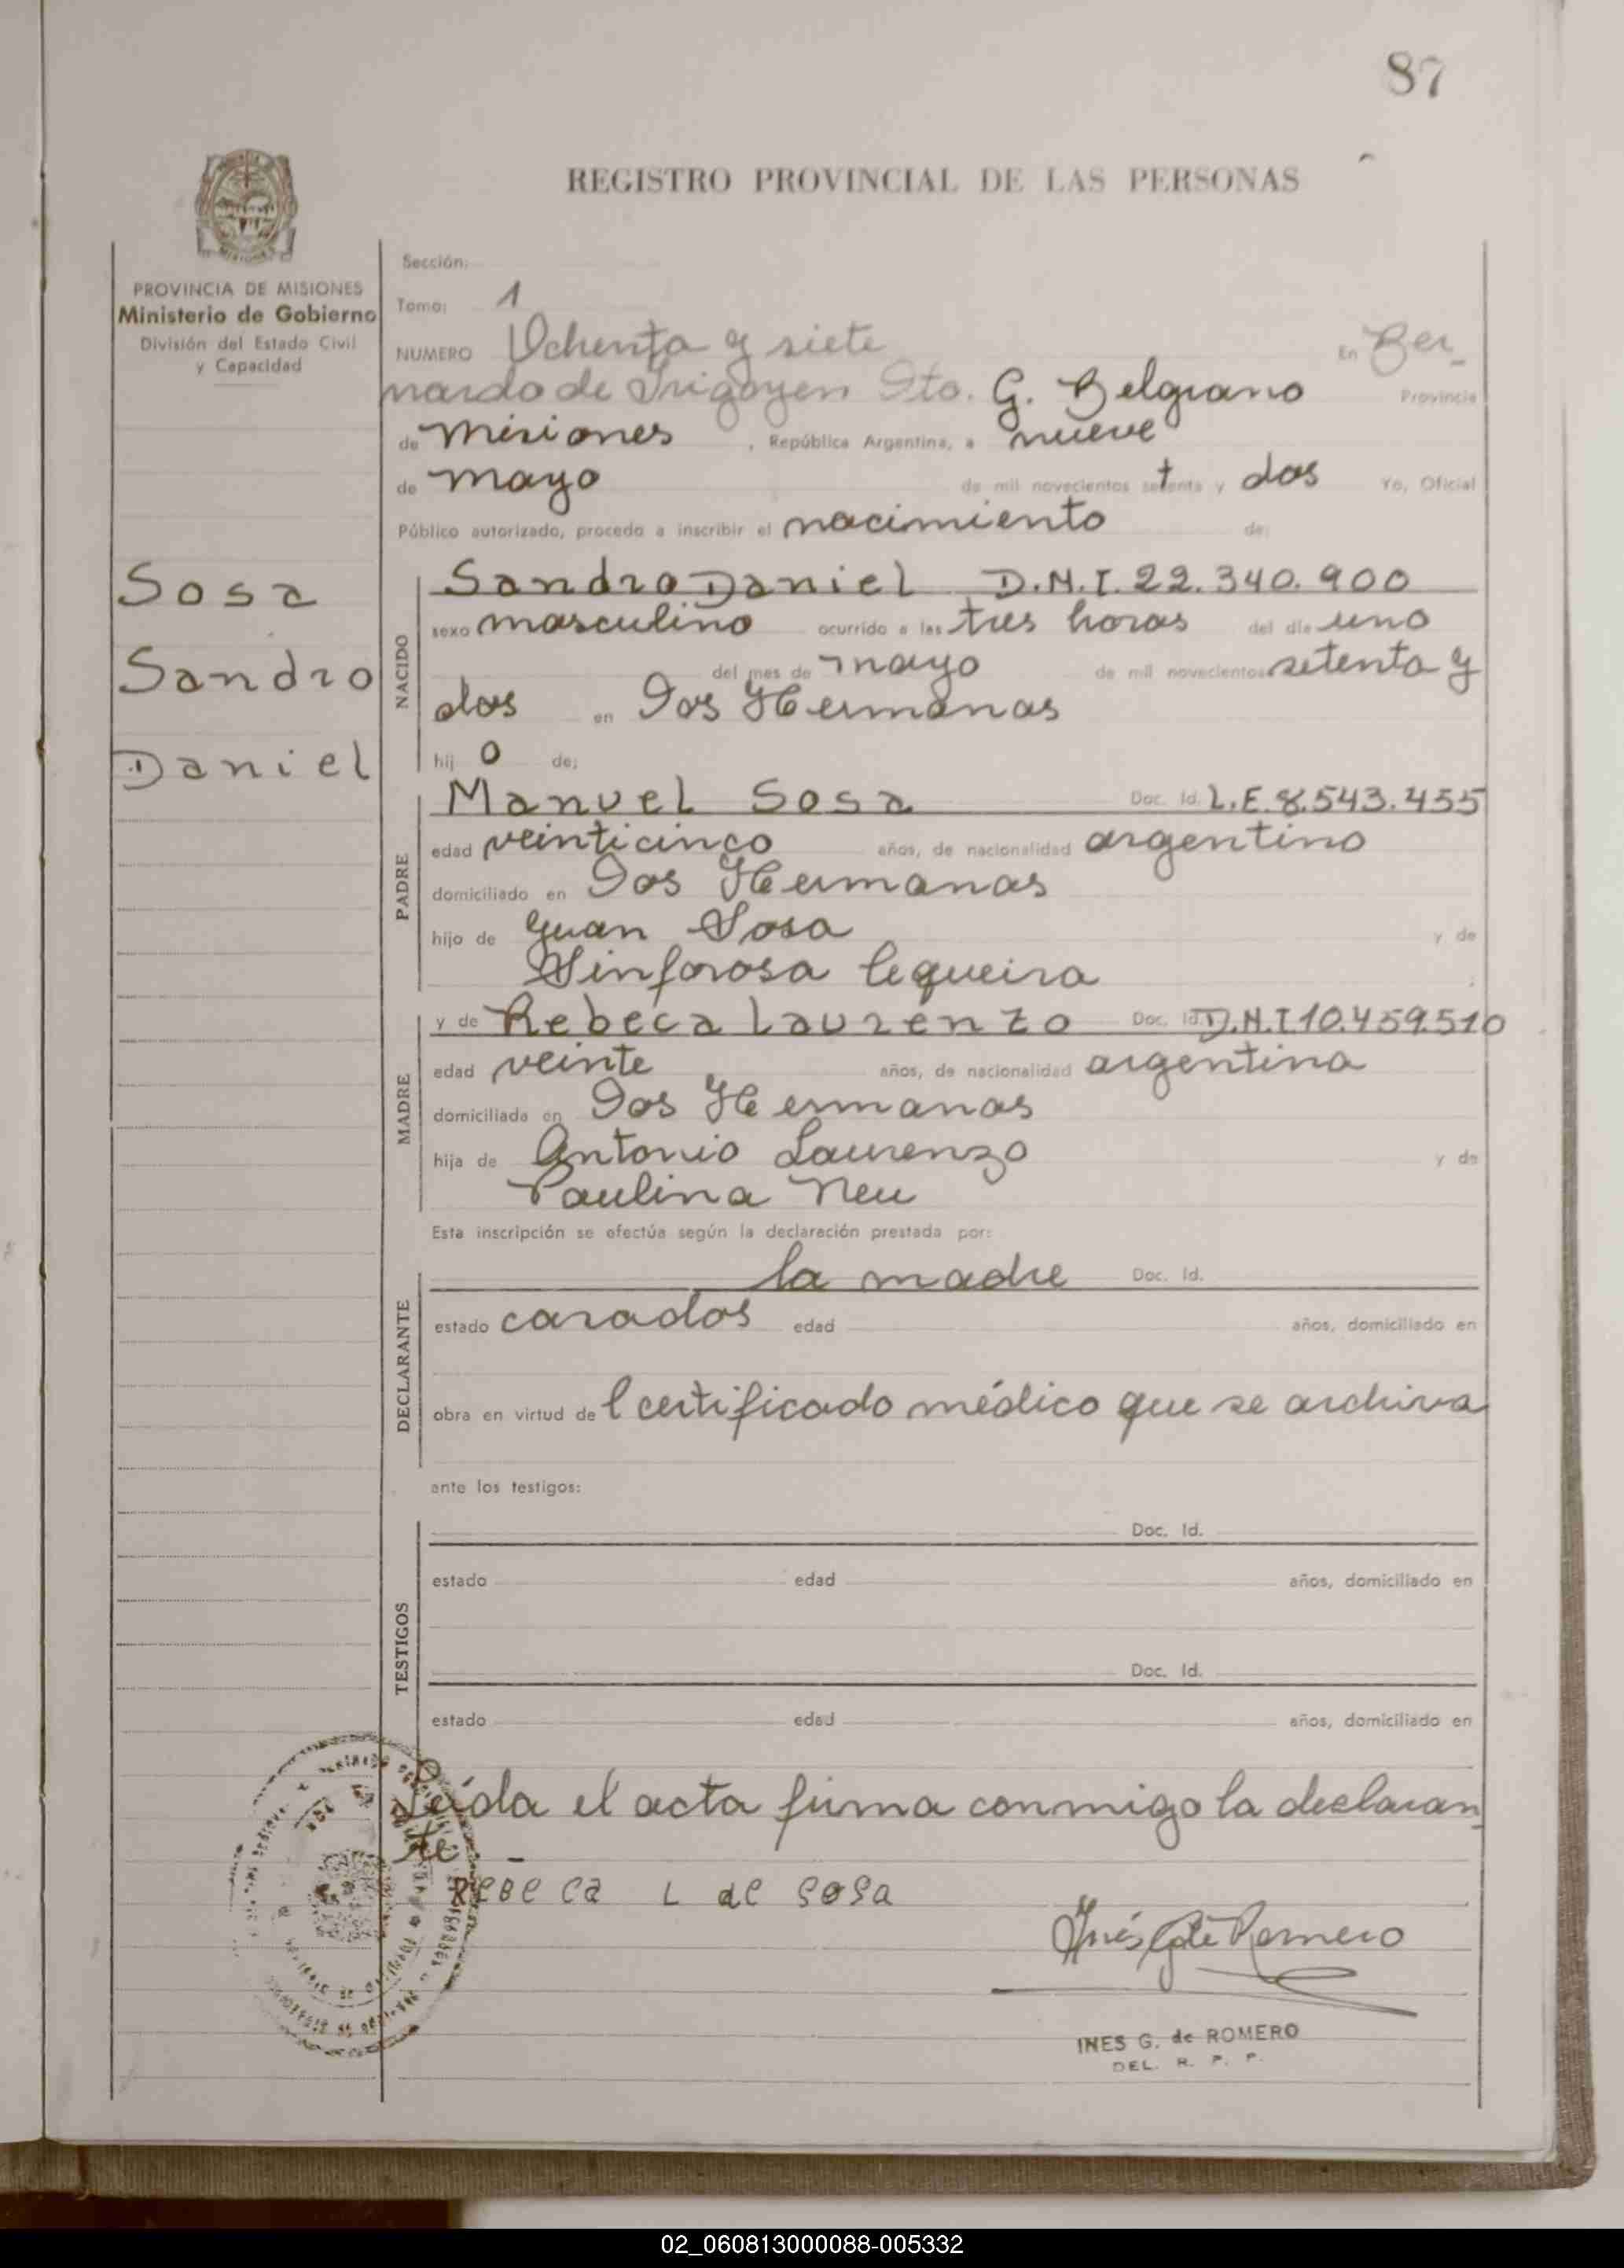 87
REGISTRO PROVINCIAL DE LAS PERSONAS
PROVINCIA DE MISIONES
Ministerio de Gobierno
División del Estado Civil
y Capacidad
Sección:
Tomo: 1
NUMERO Ochenta y siete En Ber_
nardo de Irigoyen Dto. G. Belgrano Provincia
de Misiones, República Argentina, a nueve
de mayo de mil novecientos setenta y dos Yo, Oficial
Público autorizado, procedo a inscribir el nacimiento de:
Sosa
Sandro
Daniel
NACIDO
Sandro Daniel D.N.I. 22.340.900
sexo masculino ocurrido a las tres horas del día uno
del mes de mayo de mil novecientos setenta y
dos en Dos Hermanas
hij o de:
PADRE
Manuel Sosa Doc. Id. L.E. 8.543.455
edad veinticinco años, de nacionalidad argentino
domiciliado en Dos Hermanas
hijo de Juan Sosa y de
Sinforosa Cequeira
MADRE
y de Rebeca Laurenzo Doc. Id. D.N.I 10.459.510
edad veinte años, de nacionalidad argentina
domiciliada en Dos Hermanas
hija de Antonio Laurenzo y de
Paulina Neu
Esta inscripción se efectúa según la declaración prestada por:
DECLARANTE
la madre Doc. Id.
estado casados edad años, domiciliado en
obra en virtud de l certificado médico que se archiva
ante los testigos:
TESTIGOS
Doc. Id.
estado edad años, domiciliado en
Doc. Id.
estado edad años, domiciliado en
Leída el acta firma conmigo la declaran_
te _
Rebeca L de Sosa
Inés G de Romero
INES G. de ROMERO
DEL. R. P. P.
02_060813000088-005332